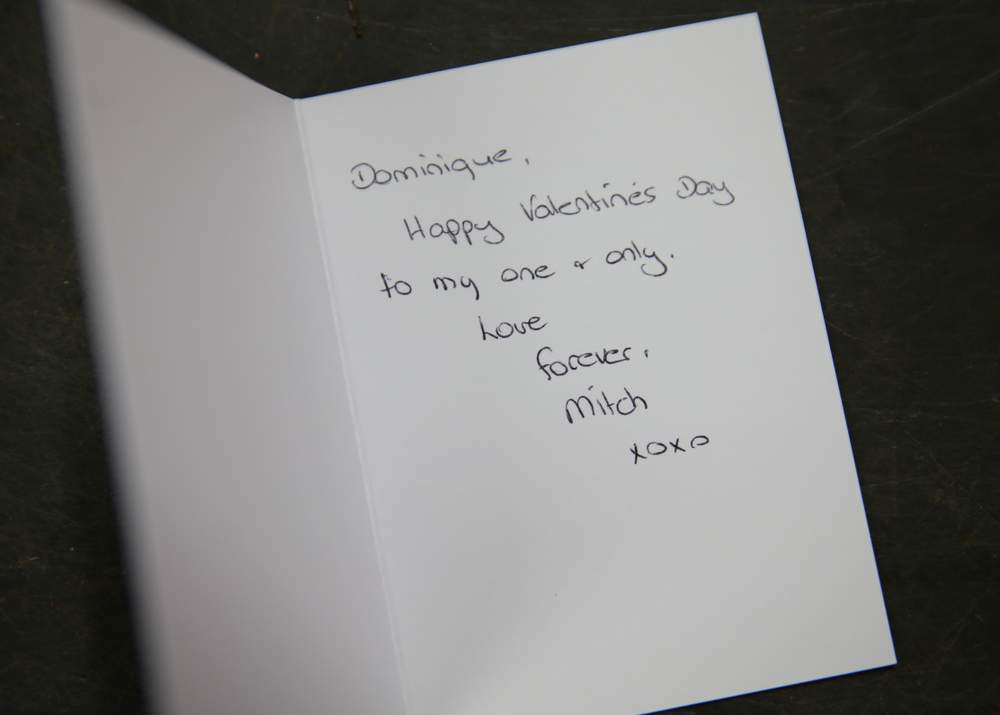 Dominique,
Happy Valentine's Day
to my one & only.
Love
forever,
Mitch
xoxo